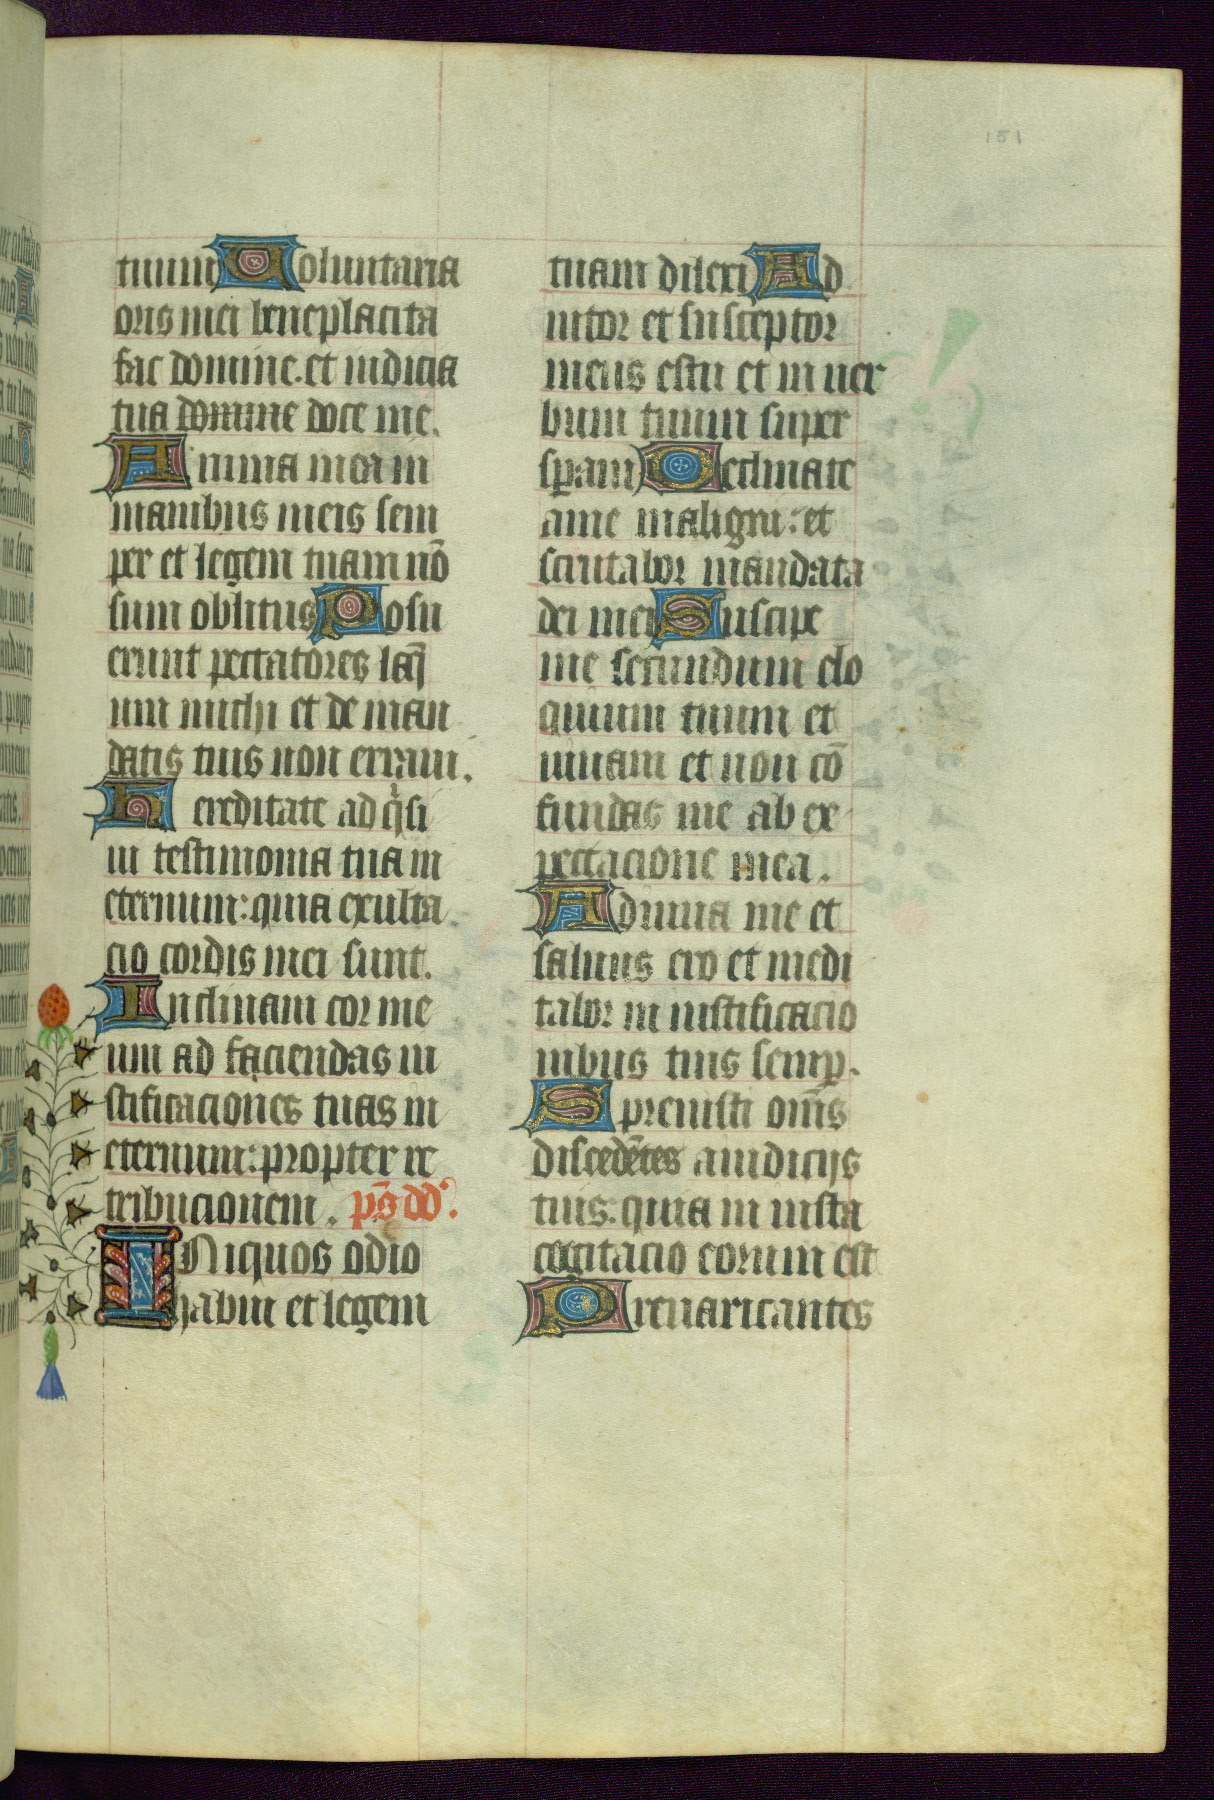 151
tuum Uoluntaria
oris mei beneplacita
fac domine. et iudicia
tua domine doce me.
Anima mea in
manibus meis sem
per et legem tuam nō
sum oblitus Posu
erunt peccatores laq̄
um michi et de man
datis tuis non erraui.
Hereditate adq̇si
ui testimonia tua in
eternum: quia exulta
cio cordis mei sunt.
Inclinaui cor me
um ad faciendas iu
stificaciones tuas in
eternum: propter re
tribucionem. ps̄ dd'.
INiquos odio
habui et legem
tuam dilexi Ad
iutor et susceptor
meus es tu et in uer
bum tuum super
speraui Declinate
a me maligni: et
scrutabor mandata
dei mei Suscipe
me secundum elo
quium tuum et
uiuam et non cō
fundas me ab ex
pectacione mea.
Adiuua me et
saluus ero et medi
tabor in iustificacio
nibus tuis semꝑ.
Spreuisti om̄s
discedētes a iudicijs
tuis: quia iniusta
cogitacio eorum est
Preuaricantes